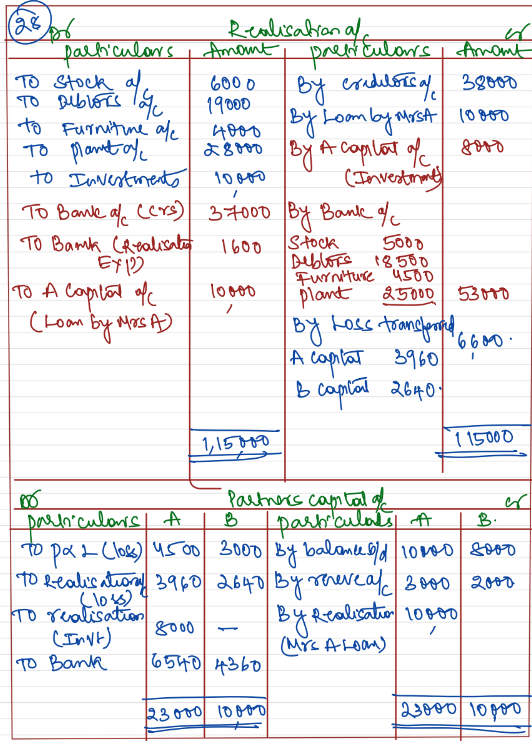 28
Dr Realisation a/c Cr
particulars Amount particulars Amount
To Stock a/c 6000 By creditors a/c 38000
To Debtors a/c 19000
To Furniture a/c 4000 By Loan by Mrs A 10000
To plant a/c 28000 By A Capital a/c 8000
To Investments 10,000 (Investment)
To Bank a/c (crs) 37000 By Bank a/c
To Bank (Realisation 1600 Stock 5000
Exp) Debtors 18500
Furniture 4500
To A Capital a/c 10,000 plant 25000 53000
(Loan by Mrs A) By Loss transferred 6600.
A capital 3960
B capital 2640.
1,15,000 115000
Dr Partners capital a/c Cr
particulars A B particulars A B.
To p&L (loss) 4500 3000 By balance b/d 10000 8000
To Realisation a/c 3960 2640 By reserve a/c 3000 2000
(loss)
To realisation 8000 — By Realisation 10,000
(Invt) (Mrs A Loan)
To Bank 6540 4360
23000 10,000 23000 10,000